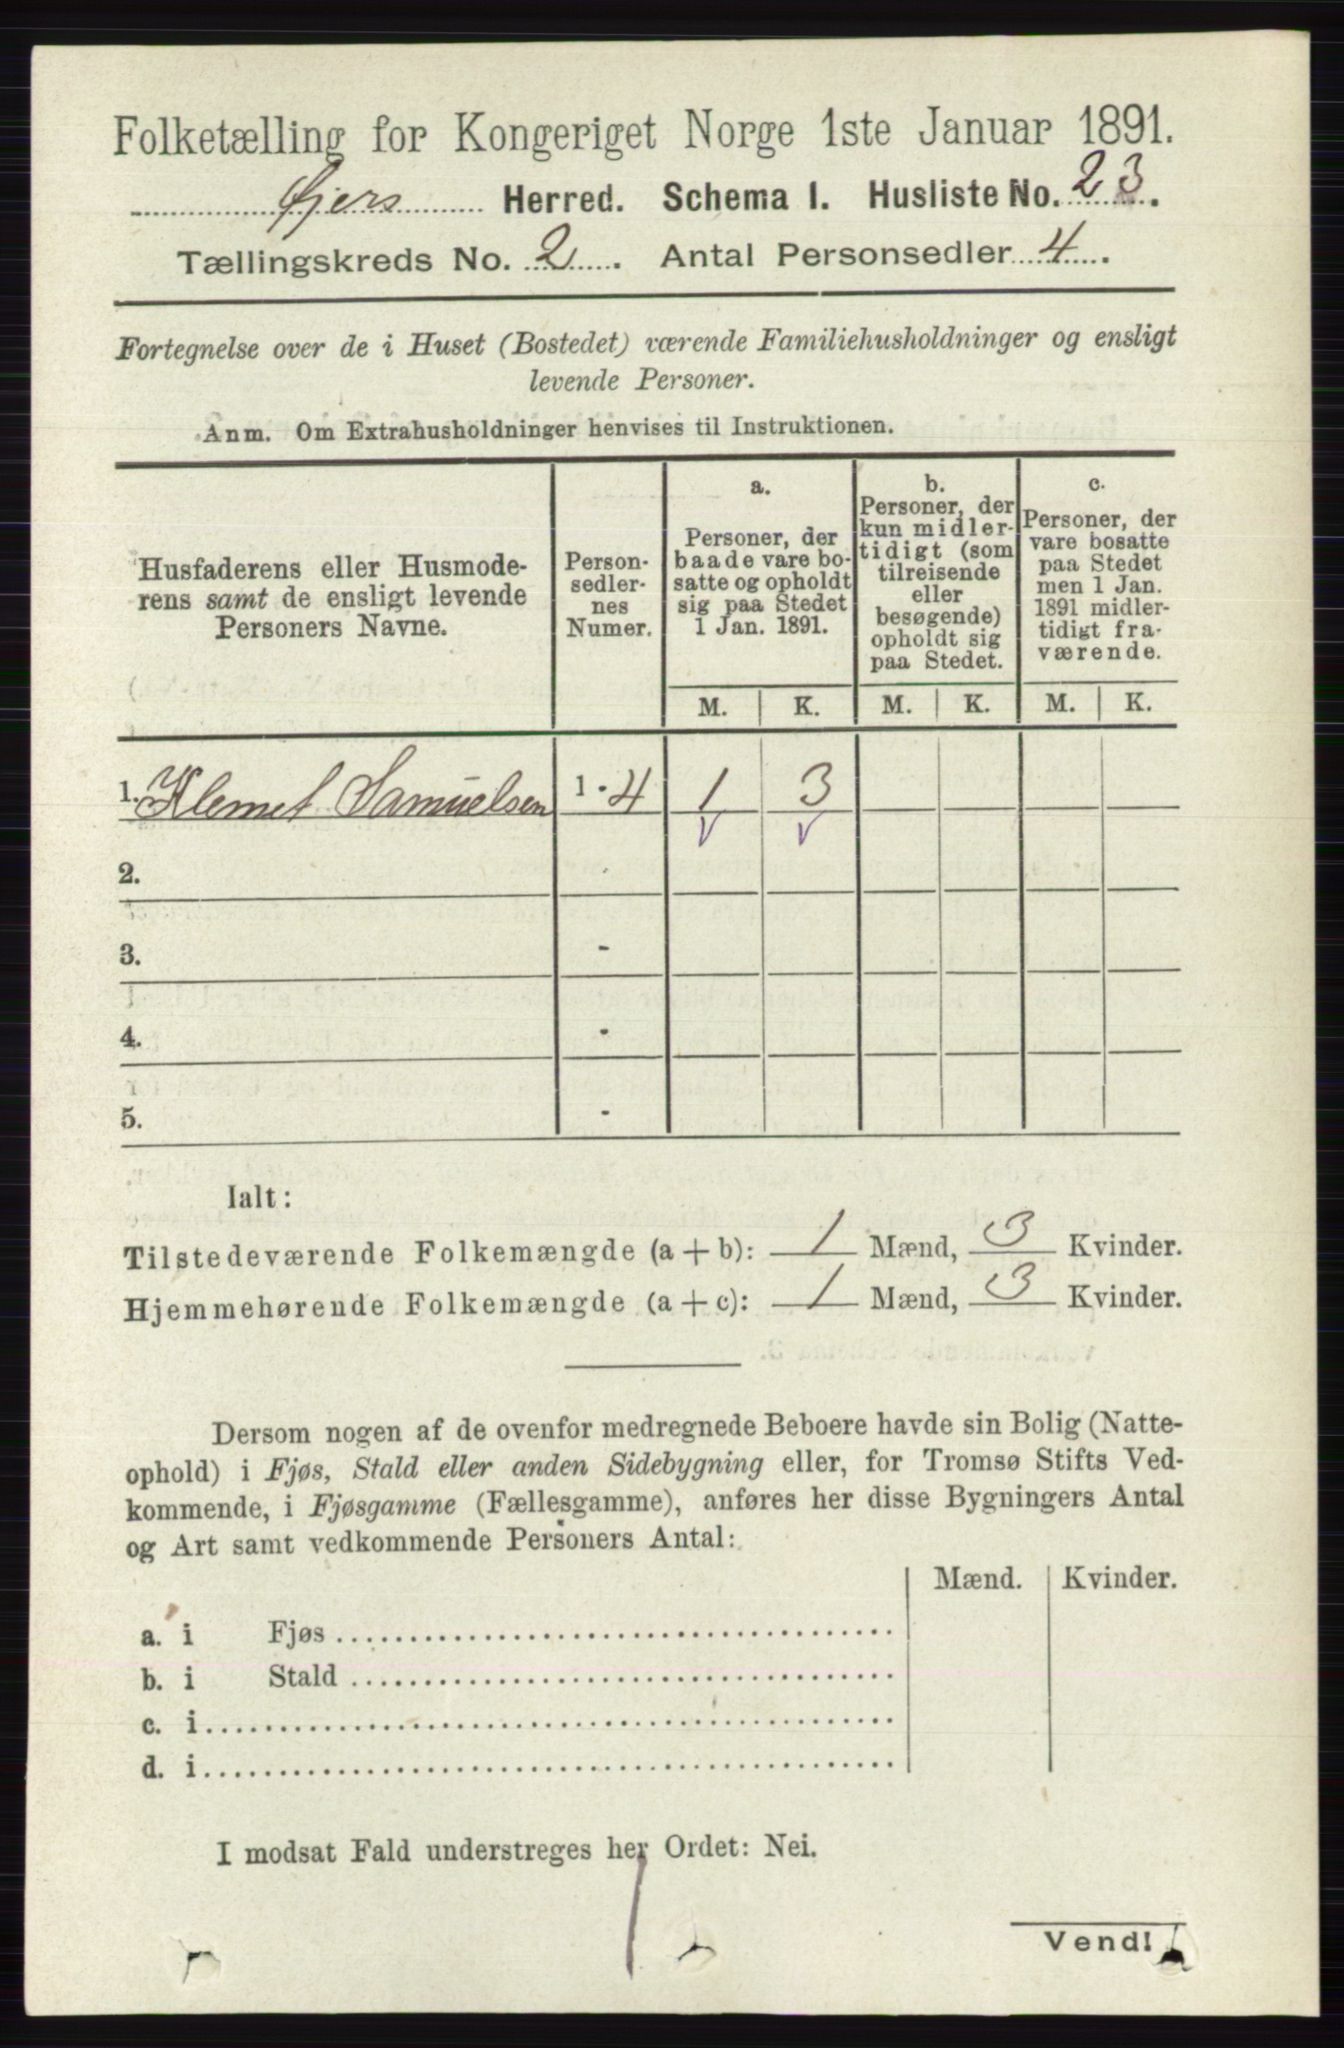 Folketælling for Kongeriget Norge 1ste Januar 1891.
Gjers Herred. Schema I. Husliste No. 23.
Tællingskreds No. 2. Antal Personsedler 4.
Fortegnelse over de i Huset (Bostedet) værende Familiehusholdninger og ensligt
levende Personer.
Anm. Om Extrahusholdninger henvises til Instruktionen.
Husfaderens eller Husmode-
rens samt de ensligt levende
Personers Navne.
Person-
sedler-
nes
Numer.
a.
Personer, der
baade vare bo-
satte og opholdt
sig paa Stedet
1 Jan. 1891.
b.
Personer, der
kun midler-
tidigt (som
tilreisende
eller
besøgende)
opholdt sig
paa Stedet.
c.
Personer, der
vare bosatte
paa Stedet
men 1 Jan.
1891 midler-
tidigt fra-
værende.
M. K. M. K. M. K.
1. Klemet Samuelsen 1 - 4 1 3
2. -
3. -
4. -
5. -
Ialt:
Tilstedeværende Folkemængde (a + b): 1 Mænd, 3 Kvinder.
Hjemmehørende Folkemængde (a + c): 1 Mænd, 3 Kvinder.
Dersom nogen af de ovenfor medregnede Beboere havde sin Bolig (Natte-
ophold) i Fjøs, Stald eller anden Sidebygning eller, for Tromsø Stifts Ved-
kommende, i Fjøsgamme (Fællesgamme), anføres her disse Bygningers Antal
og Art samt vedkommende Personers Antal:
Mænd. Kvinder.
a. i Fjøs
b. i Stald
c. i
d. i
I modsat Fald understreges her Ordet: Nei.
Vend!